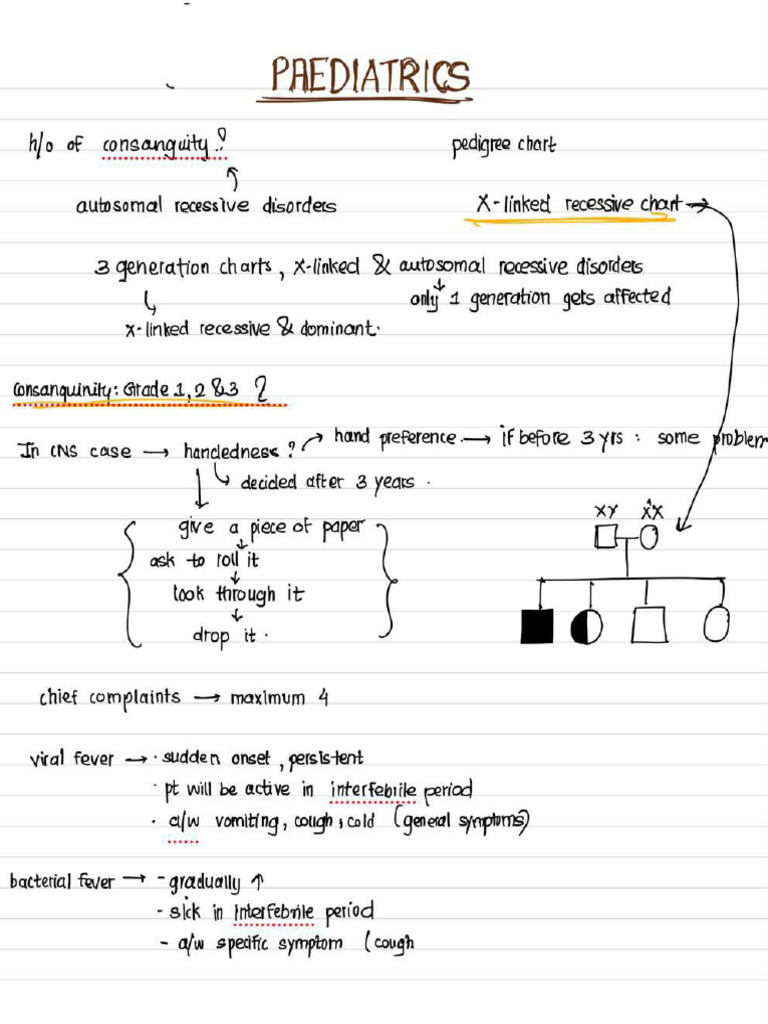 PAEDIATRICS
h/o of consanguity?
pedigree chart
autosomal recessive disorders
X-linked recessive chart →
3 generation charts, X-linked & autosomal recessive disorders
only 1 generation gets affected
x-linked recessive & dominant.
Consanguinity: Grade 1, 2 & 3 ?
In CNS case → handedness? → hand preference → if before 3 yrs : some problem
decided after 3 years.
XY XX
give a piece of paper
ask to roll it
look through it
drop it.
chief complaints → maximum 4
viral fever → · sudden onset, persistent
· pt will be active in interfebrile period
· a/w vomiting, cough, cold (general symptoms)
bacterial fever → - gradually ↑
- sick in interfebrile period
- a/w specific symptom (cough